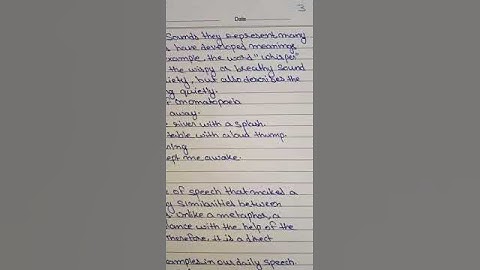 3
Date
Sounds they represent, many
s have developed meanings
xample, the word "whisper"
the wispy or breathy sound
iety, but also describes the
ng quietly.
onomatopoeia
away.
river with a splash.
table with a loud thump.
ning
ept me awake.
of speech that makes a
g similarities between
s unlike a metaphor, a
lance with the help of the
Therefore, it is a direct
xamples in our daily speech.